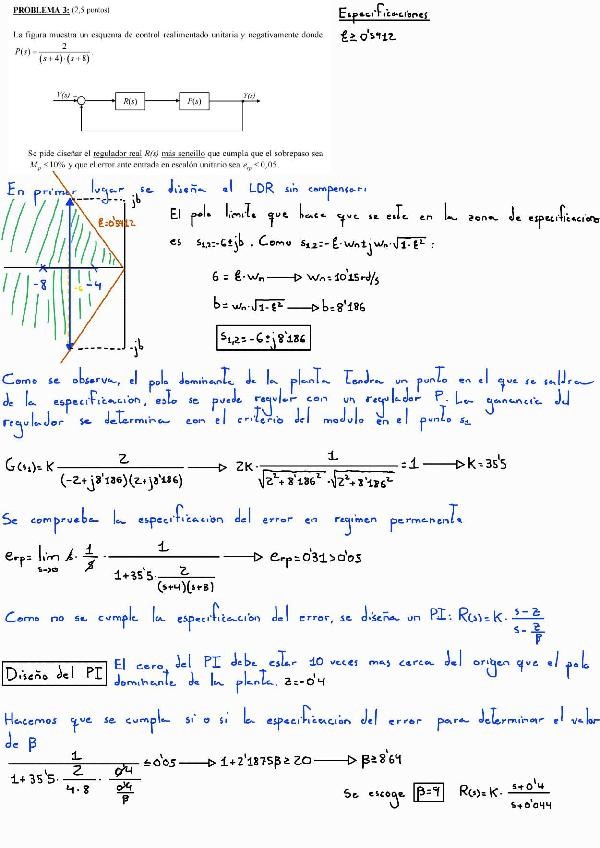 PROBLEMA 3: (2,5 puntos)
La figura muestra un esquema de control realimentado unitaria y negativamente donde
P(s) = 2 / ((s+4)·(s+8)).
Y(s) R(s) P(s) Y(s)
Se pide diseñar el regulador real R(s) más sencillo que cumpla que el sobrepaso sea
Mp <10% y que el error ante entrada en escalón unitario sea erp < 0,05.
Especificaciones
ξ ≥ 0'5912
En primer lugar se diseña el LDR sin compensar:
jb
ξ=0'5912
-8 -6 -4
-jb
El polo límite que hace que se este en la zona de especificacion
es s1,2=-6±jb. Como s1,2=-ξ·wn±j wn·√(1-ξ²) :
6 = ξ·wn → wn=10'15rd/s
b=wn·√(1-ξ²) → b=8'186
s1,2=-6±j8'186
Como se observa, el polo dominante de la planta tendra un punto en el que se saldra
de la especificación, esto se puede regular con un regulador P. La ganancia del
regulador se determina con el criterio del modulo en el punto s1
G(s1)=K 2 / ((-2+j8'186)(2+j8'186)) → 2K· 1 / (√(2²+8'186²)·√(2²+8'186²)) =1 → K=35'5
Se comprueba la especificación del error en regimen permanente
erp= lim s→0 s· 1/s · 1 / (1+35'5· 2/((s+4)(s+8))) → erp=0'31>0'05
Como no se cumple la especificación del error, se diseña un PI: R(s)=K· (s-z)/(s-z/β)
Diseño del PI
El cero del PI debe estar 10 veces mas cerca del origen que el polo
dominante de la planta. z=-0'4
Hacemos que se cumpla si o si la especificación del error para determinar el valor
de β
1 / (1+35'5· 2/(4·8) · 0'4/(0'4/β)) ≤0'05 → 1+2'1875β≥20 → β≥8'69
Se escoge β=9 R(s)=K· (s+0'4)/(s+0'044)